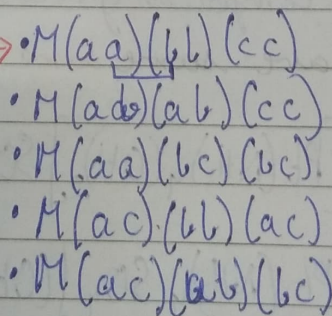 • M(aa)(bb)(cc)
• M(ab)(ab)(cc)
• M(aa)(bc)(bc)
• M(ac)(bb)(ac)
• M(ac)(ab)(bc)